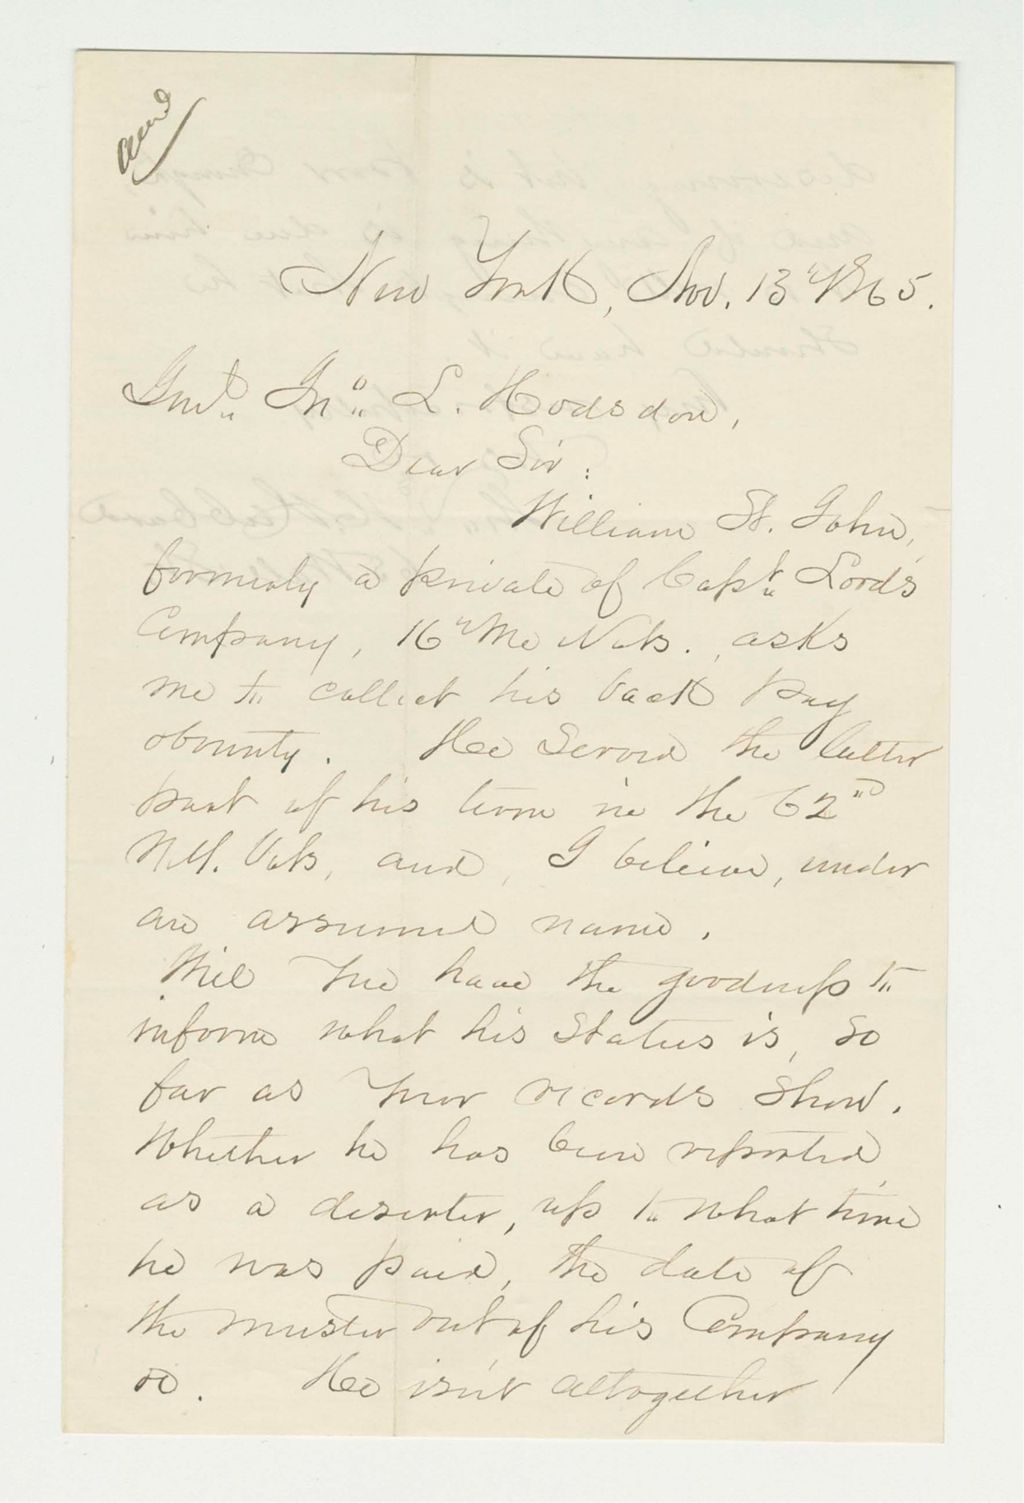 New York, Nov. 13" 1865.
Genl. Jno. L. Hodsdon,
Dear Sir:
William St. John,
formerly a private of Capt. Lord's
Company, 16" Me Vols., asks
me to collect his back pay
& bounty. He served the latter
part of his term in the 62nd
N.Y. Vols, and, I believe, under
an assumed name.
Will you have the goodness to
inform what his status is, so
far as your records show.
Whether he has been reported
as a deserter, up to what time
he was paid, the date of
the muster out of his Company
&c. He isn't altogether